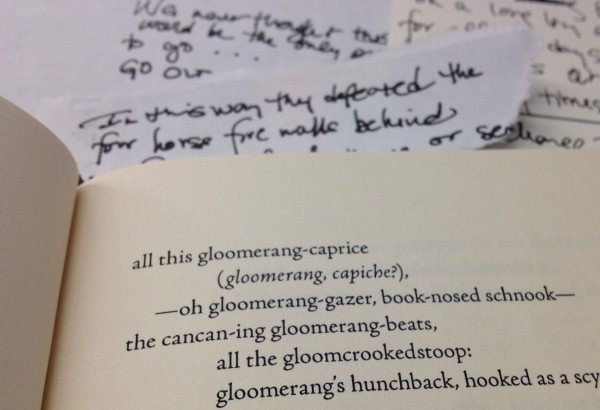 We never thought this
would be the
to go . . .
GO Our
a love
for
In this way they defeated the
four horse fire walls behind
or
times
all this gloomerang-caprice
(gloomerang, capiche?),
—oh gloomerang-gazer, book-nosed schnook—
the cancan-ing gloomerang-beats,
all the gloomcrookedstoop:
gloomerang's hunchback, hooked as a scy